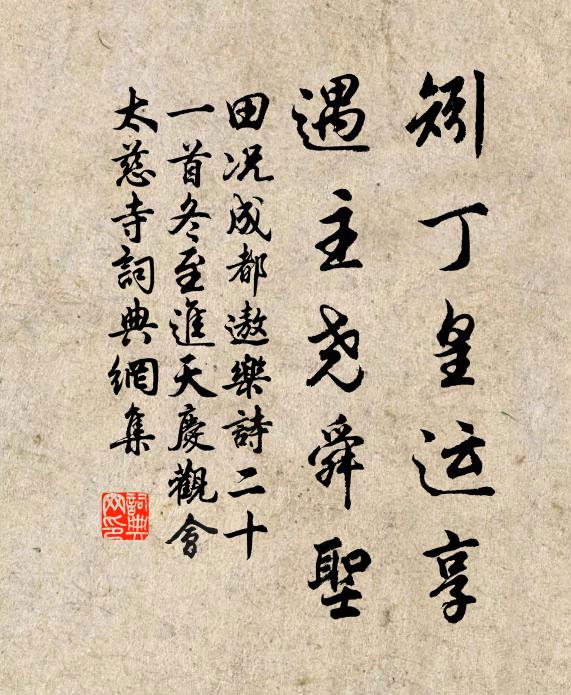 矧丁皇运享
遇主尧舜聖
田况成都遨樂詩二十
一首冬至進天慶觀會
太慈寺詞典網集
詞典
网印